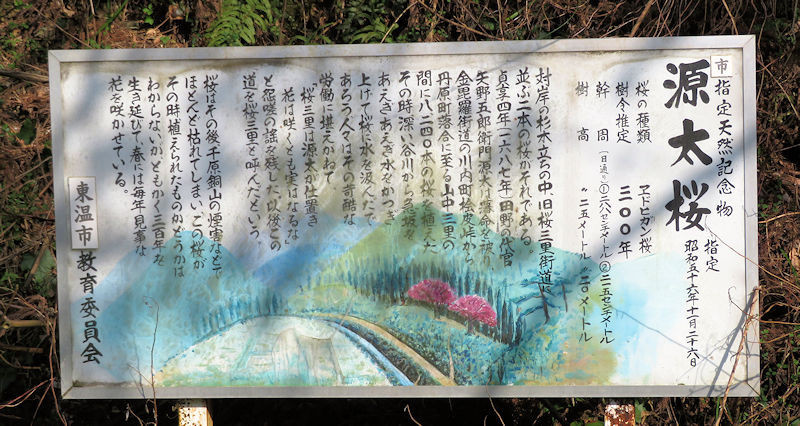 市指定天然記念物
源太桜
指定
昭和五十六年十一月二十六日
桜の種類 ヱドヒガン桜
樹令推定 三〇〇年
幹周(目通り)①二六八センチメートル②二一五センチメートル
樹高 〃二五メートル 〃二〇メートル
対岸の杉木立ちの中、旧桜三里街道に
並ぶ二本の桜がそれである。
貞享四年(一六八七年)田野の代官
矢野五郎衛門源太は藩命を被り
金毘羅街道の川内町桧皮峠から
丹原町落合に至る山中三里の
間に八二四〇本の桜を植えた
その時深い谷川から急坂を
あえぎあえぎ水をかつぎ
上げて桜に水を汲んだで
あろう人々はその苛酷な
労働に堪えかねて
「桜三里は源太が仕置き
花は咲くとも実はなるな」
と怨嗟の謡を残した以後この
道を桜三里と呼んだという
桜はその後千原銅山の煙害などで
ほとんど枯れてしまい、この桜が
その時植えられたものかどうかは
わからないが、ともかく三百年を
生き延びて春には毎年見事な
花を咲かせている。
東温市教育委員会